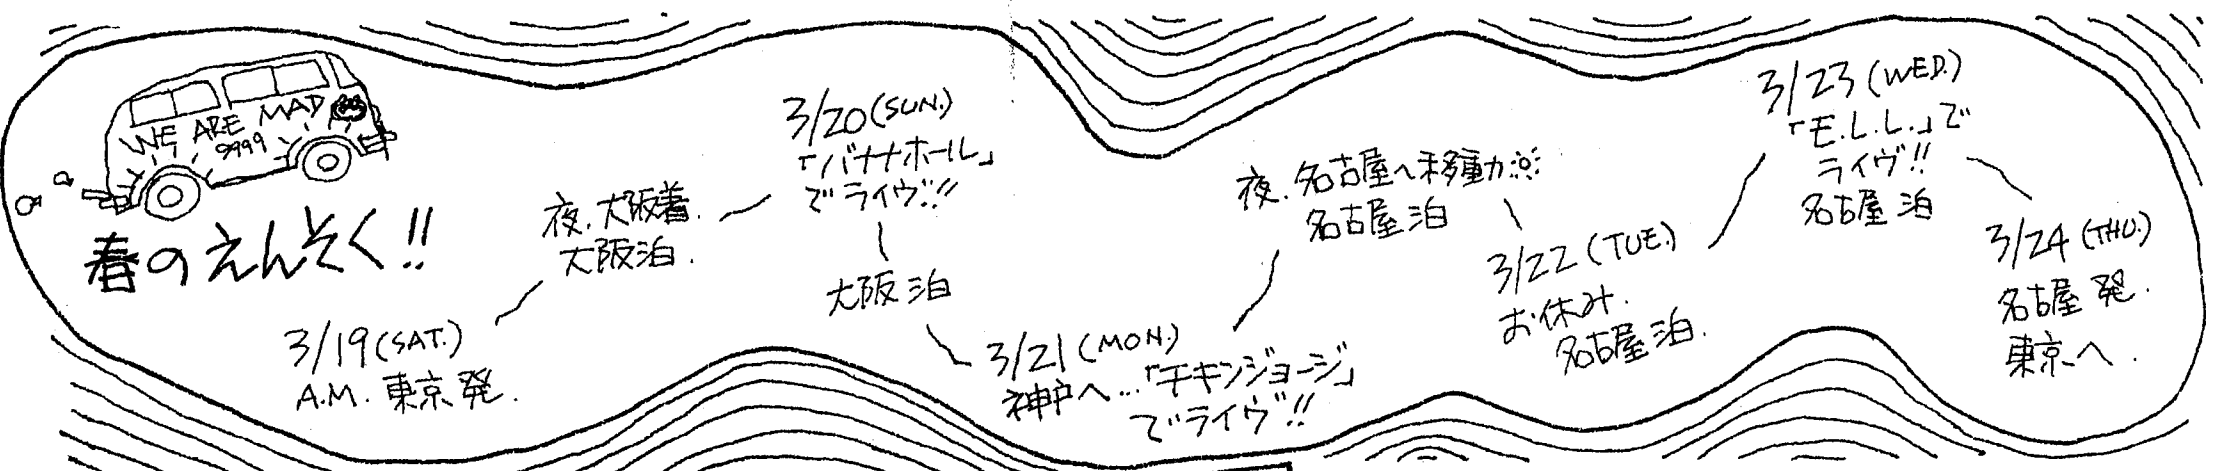 WE ARE MAD
9999
春のえんそく!!
3/19(SAT.)
A.M. 東京発.
夜.大阪着.
大阪泊.
3/20(SUN.)
「バナナホール」
でライヴ!!
大阪泊
3/21(MON.)
神戸へ...「チキンジョージ」
でライヴ!!
夜.名古屋へ移動
名古屋泊
3/22(TUE.)
お休み.
名古屋泊.
3/23(WED.)
「E.L.L.」で
ライヴ!!
名古屋泊
3/24(THU.)
名古屋発.
東京へ.